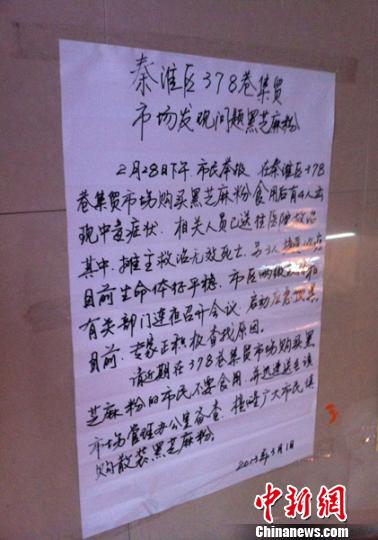 秦淮区378巷集贸
市场发现问题黑芝麻粉
2月28日下午,市民举报,在秦淮区378
巷集贸市场购买黑芝麻粉食用后有4人出
现中毒症状,相关人员已送往医院救治
其中,摊主救治无效死亡,另3人
目前生命体征平稳,市区两级
有关部门连夜召开会议,启动应急
目前,专家正积极查找原因。
请近期在378巷集贸市场购买黑
芝麻粉的市民不要食用,并迅速送至该
市场管理办公室备查,提醒广大市民慎
购散装黑芝麻粉。
2013年3月1日
中新网
Chinanews.com